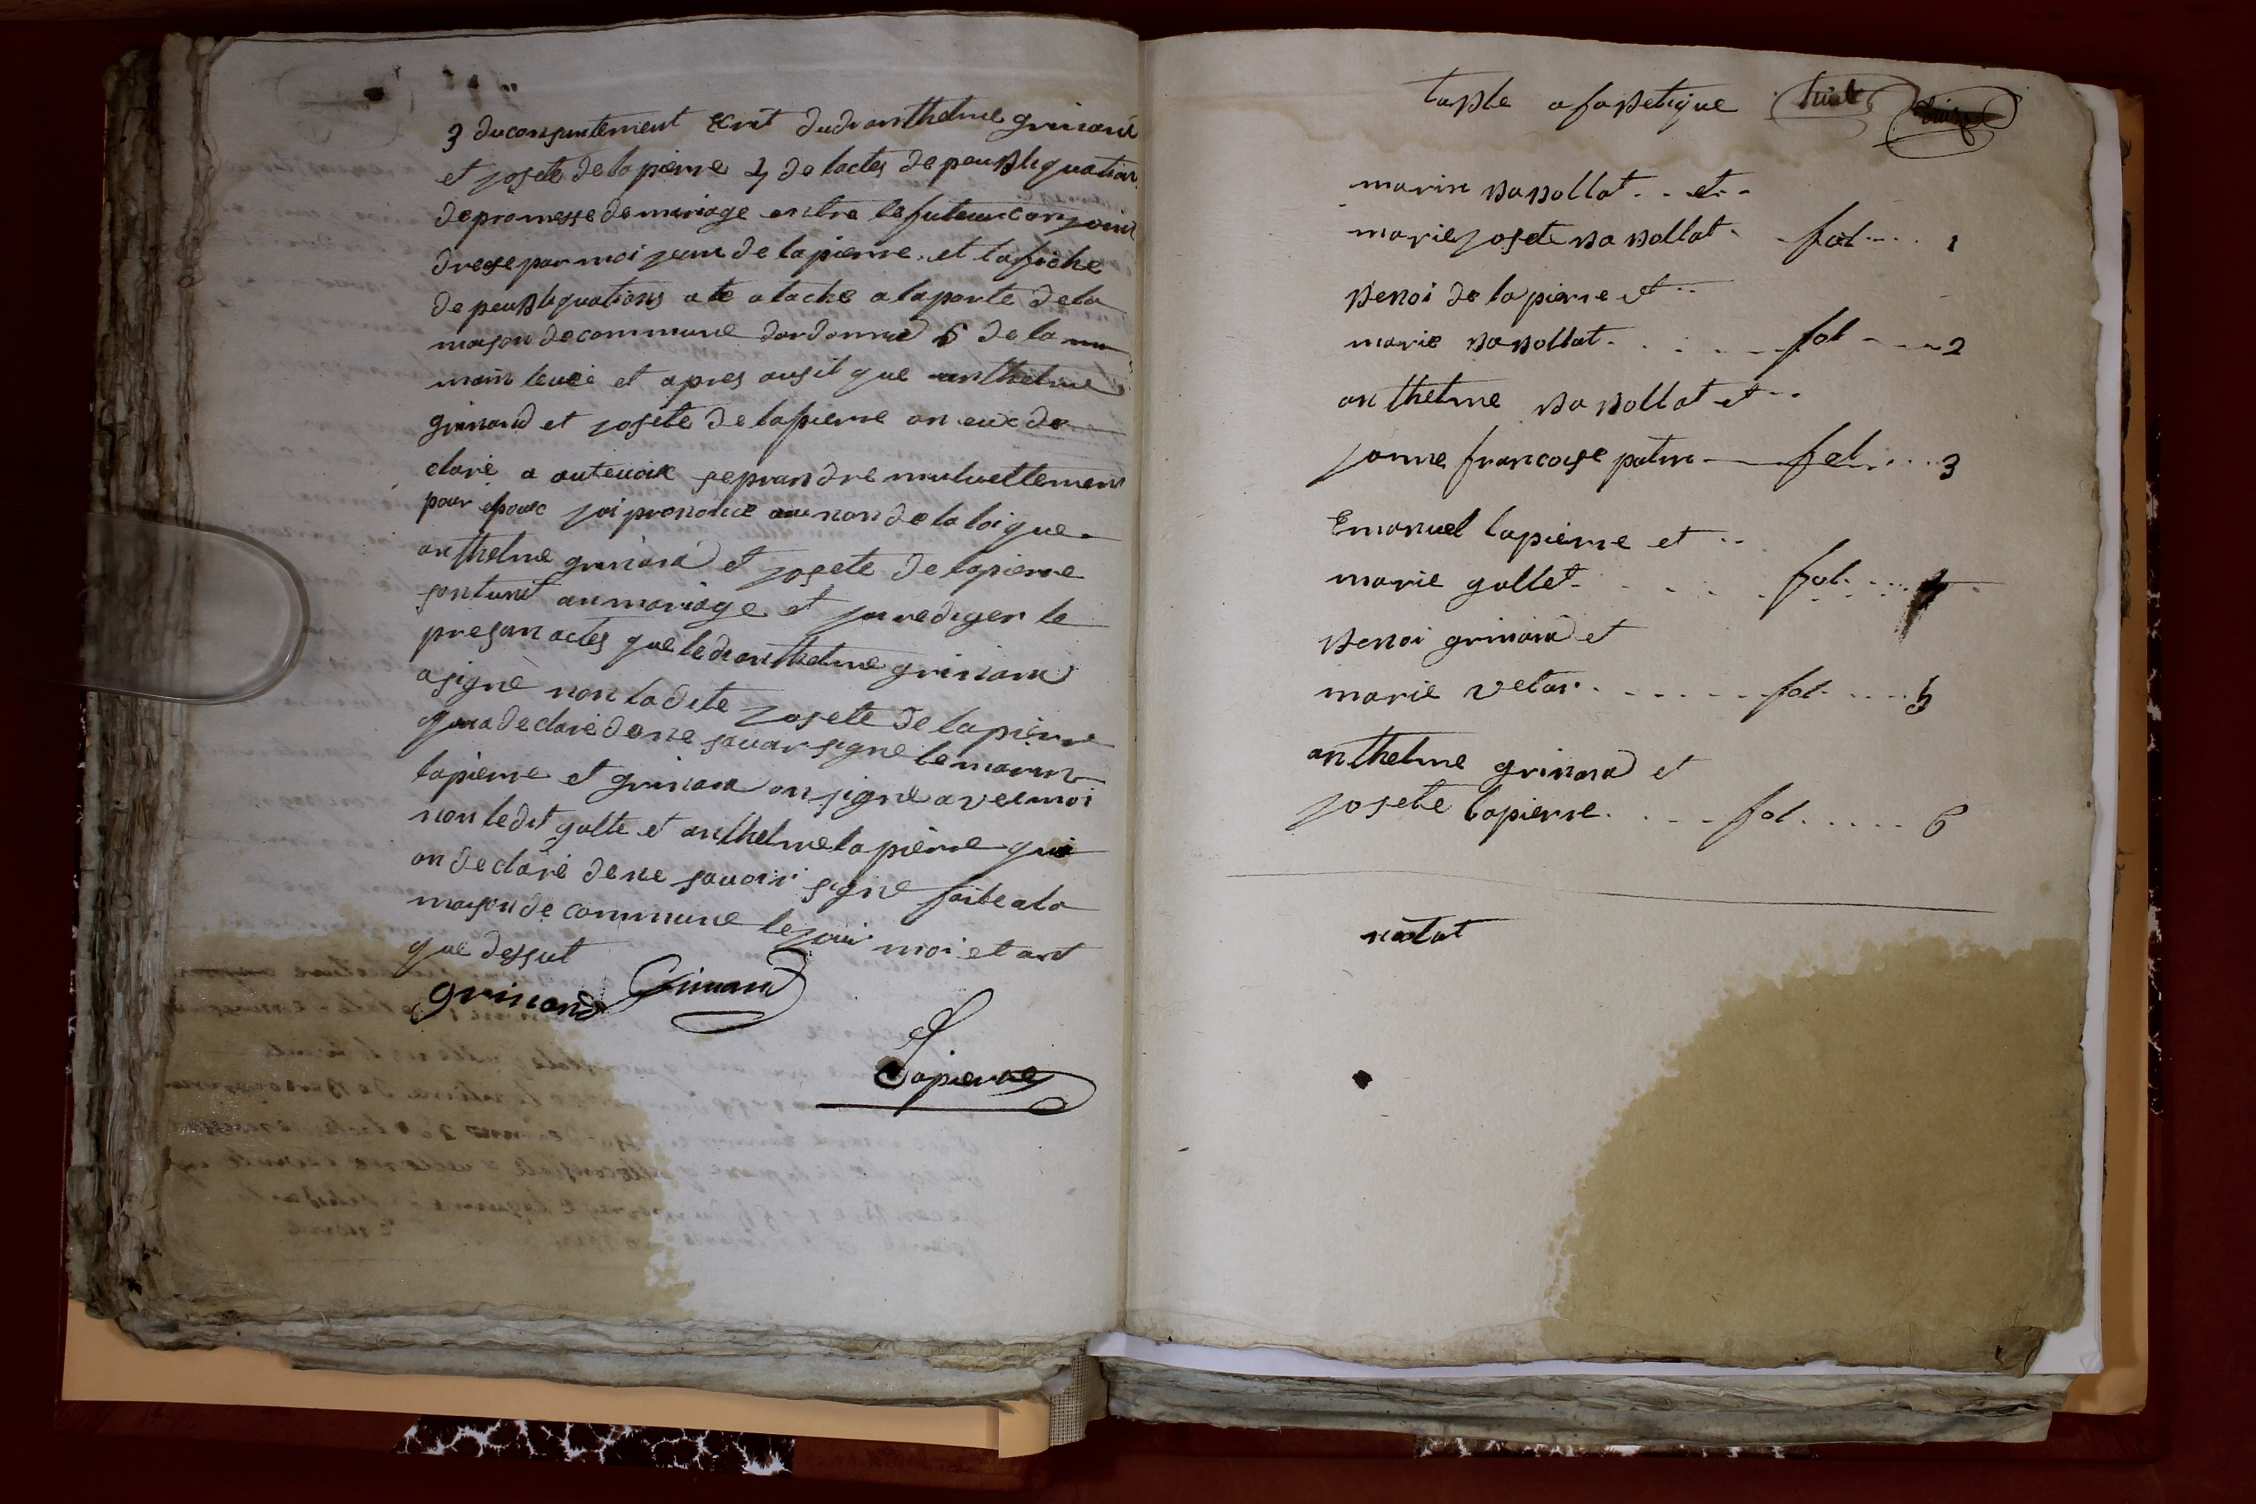 3 du consentement Ecrit dudi anthelme grinand
et josete de lapierre 4 de lactes de peubliquation
de promesse de mariage entre le futeur conjoint
drese par moi jean de lapierre et lafiche
de peubliquations a te atache a la porte de la
mayson de commune dordonnaz 5 de la
main levée et apres ausit que anthelme
grinand et josete de lapierre on eux de
claré a autevoix se prandre mutuellement
pour epoux jai prononcé au non de la loi que
anthelme grinand et josete de lapierre
sont unit an mariage et jai rediger le
presan actes que ledi anthelme grinand
a signè non la dite josete de lapierre
qui a declaré de ne savoar signe le marin
lapierre et grinand on signé avec moi
non le dit gallte et anthelme lapierre qui
on declaré de ne savoir signe faite a la
mayson de commune le jour moi et ant
que dessut
grinand Grinand
Lapierre
table afabetique
marin babollat . . et . .
marie josete babollat . fol . . . . 1
benoi de lapierre et . .
marie babollat . . . . fol . . . 2
anthelme babollat et . .
janne francoise patin fol . . . 3
Emanuel lapierre et . .
marie gallet . . . . fol . . . . 4
benoi grinand et
marie vetar . . . . . . fol . . . . 5
anthelme grinand et
josete lapierre . . . . fol . . . . . 6